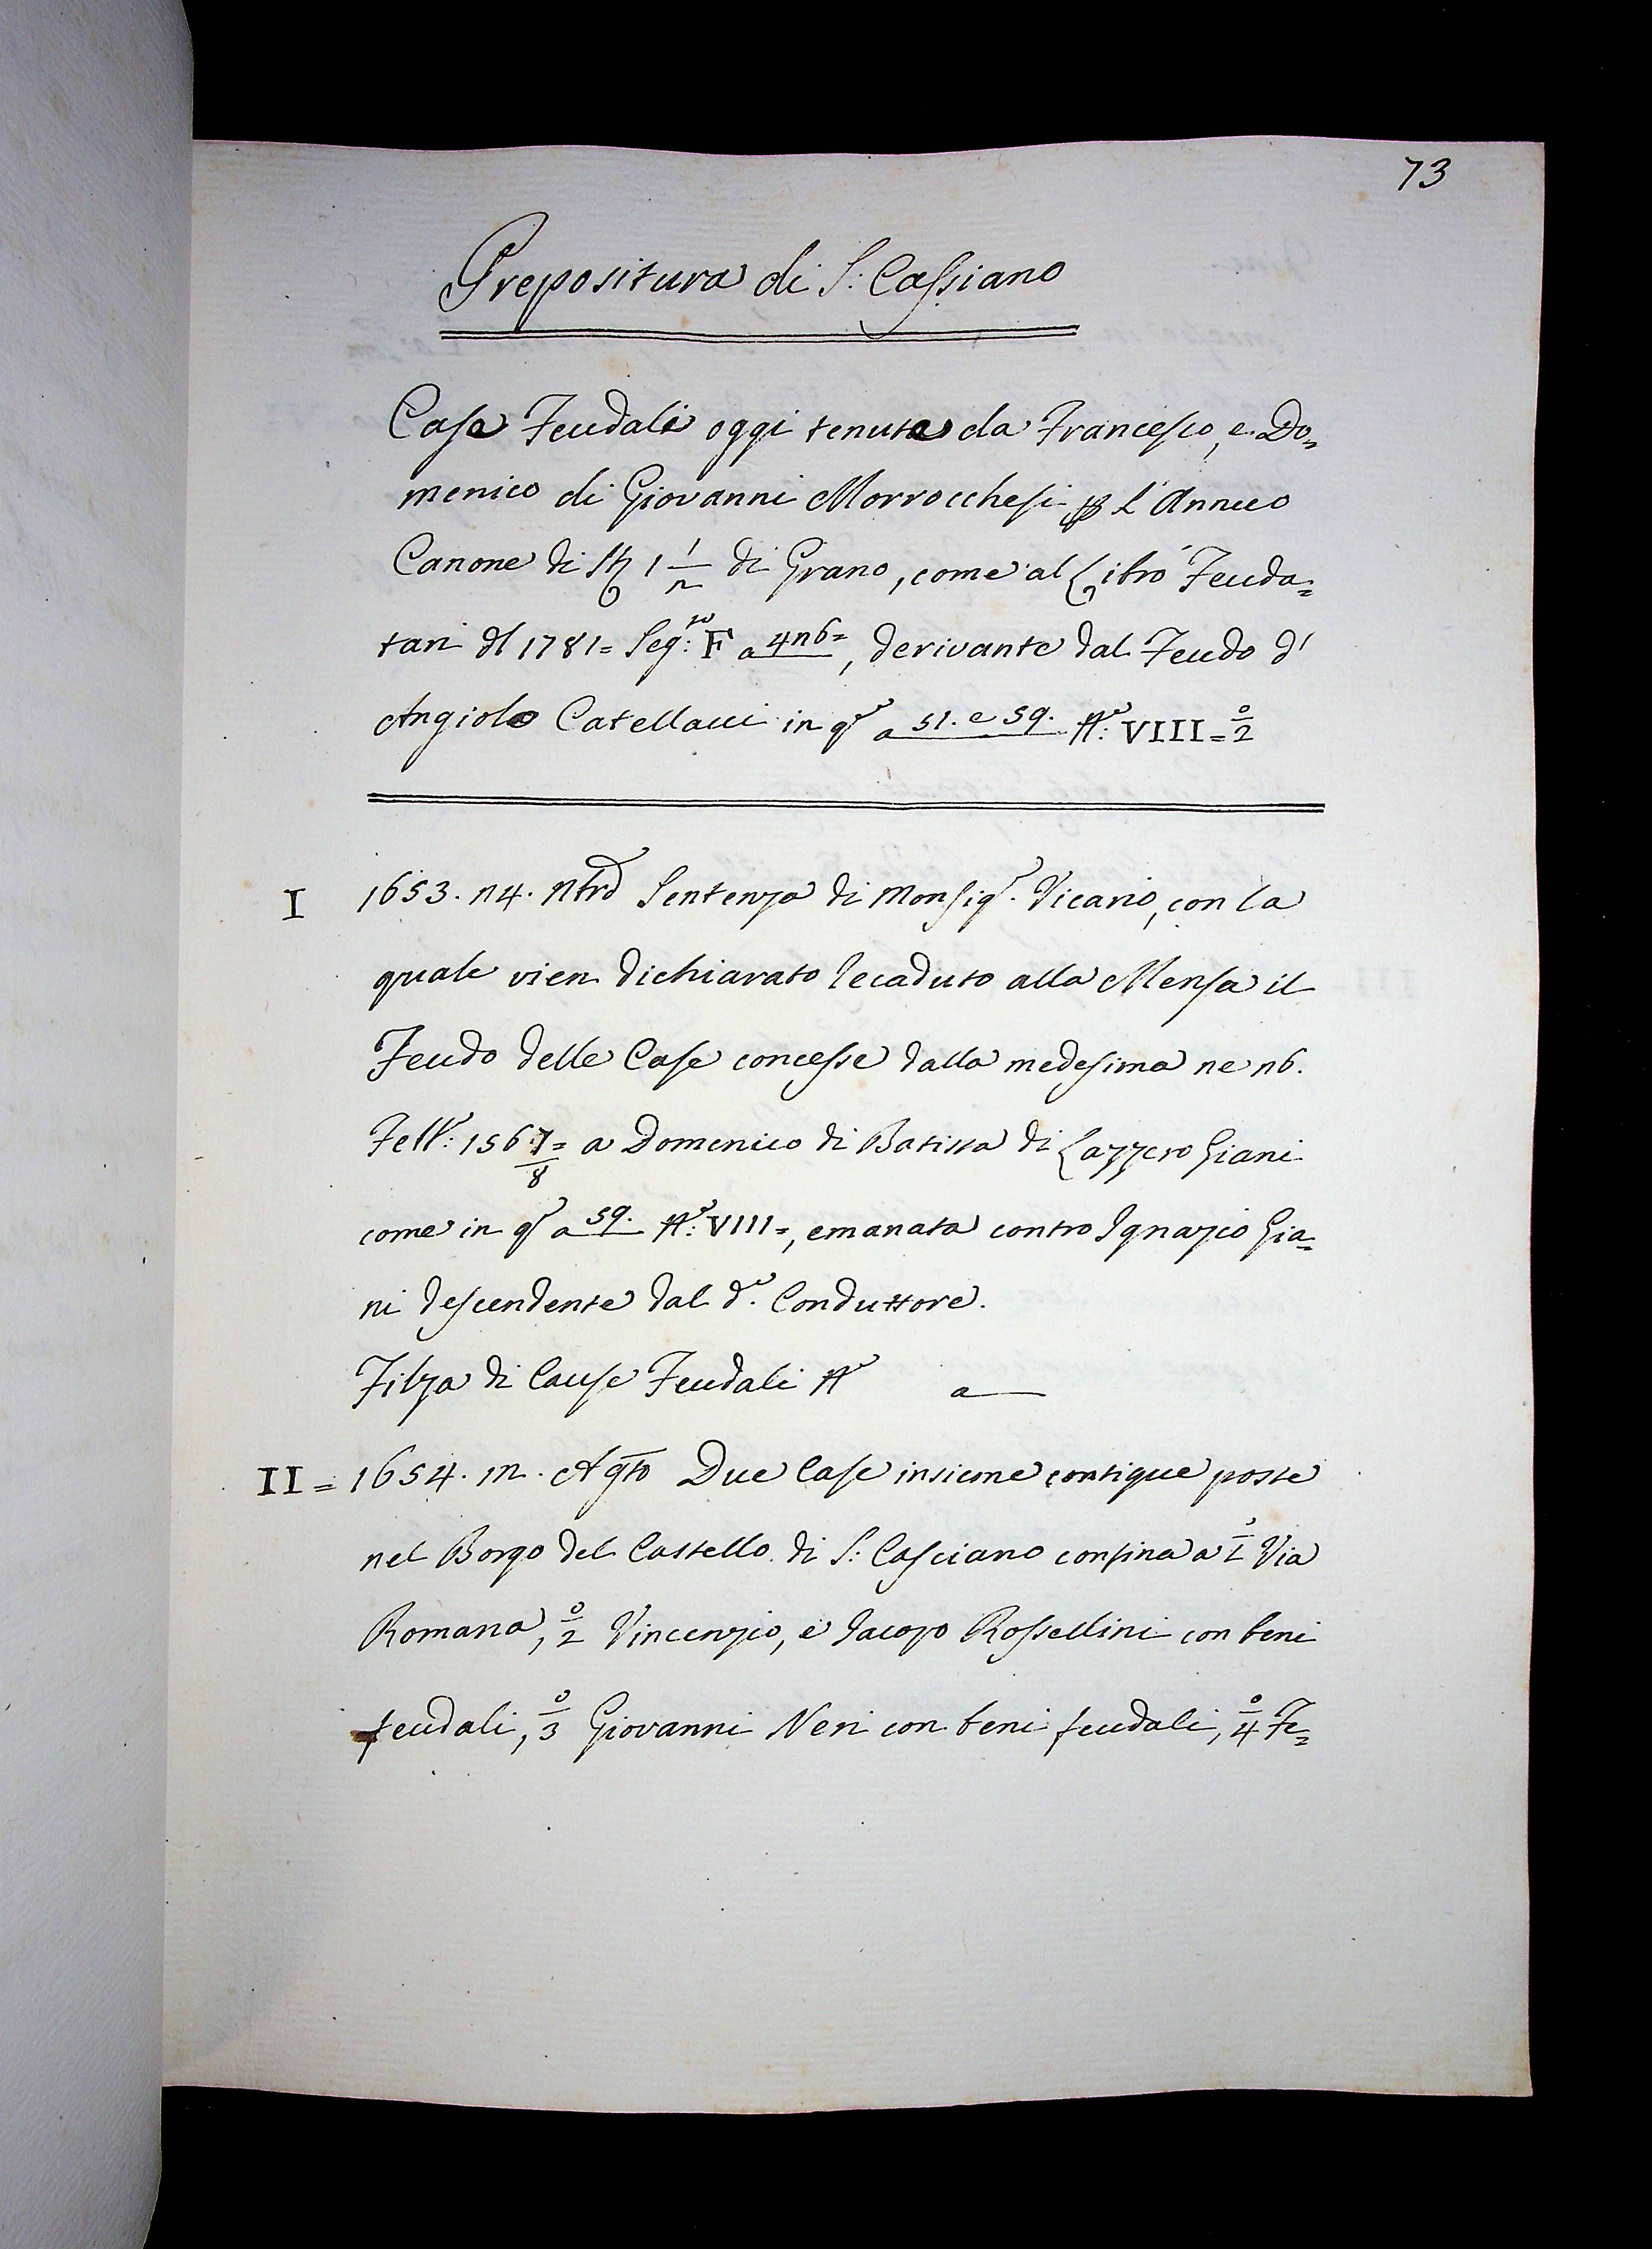 73
Prepositura di S: Cassiano
Case Feudali oggi tenute da Francesco, e Do=
menico di Giovanni Morrocchesi p l'Annuo
Canone di St 1 1/2 di Grano, come al Libro Feuda=
tari dl 1781= Seg:to F a 426=, derivante dal Feudo d'
Angiolo Catellacci in qo a 51. e 59. No: VIII = 0/2
I 1653. 24. Nbre Sentenza di Monsigr. Vicario, con la
quale vien dichiarato decaduto alla Mensa il
Feudo delle Case concesse dalla medesima ne 26.
Febb: 1567/8= a Domenico di Batista di Lazzero Giani
come in qo a 59. No: VIII=, emanata contro Ignazio Gia=
ni descendente dal do. Conduttore.
Filza di Cause Feudali No a
II = 1654. 12. Agto Due Case insieme contigue poste
nel Borgo del Castello di S: Casciano confina a I Via
Romana, 0/2 Vincenzio, e Jacopo Rossellini con beni
feudali, 0/3 Giovanni Neri con beni feudali, 0/4 Fe=